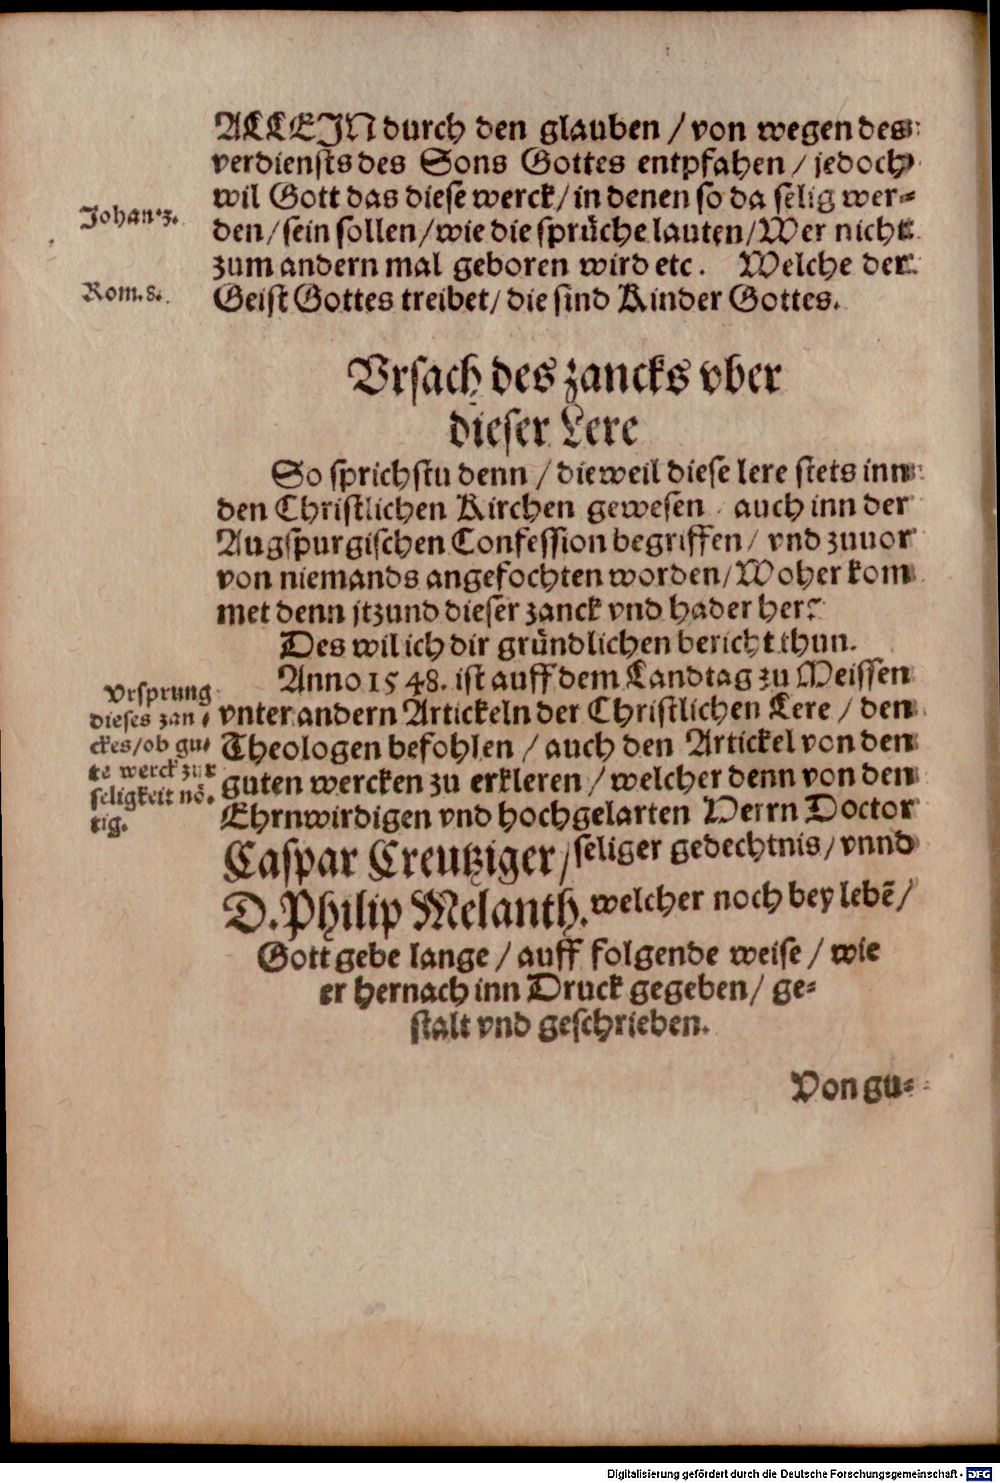 ALLEIN durch den glauben / von wegen des
verdiensts des Sons Gottes entpfahen / jedoch
wil Gott das diese werck / in denen so da selig wer-
Johan. 3.
den / sein sollen / wie die sprüche lauten / Wer nicht
zum andern mal geboren wird etc. Welche der
Rom. 8.
Geist Gottes treibet / die sind Kinder Gottes.
Vrsach des zancks vber
dieser Lere
So sprichstu denn / dieweil diese lere stets inn
den Christlichen Kirchen gewesen / auch inn der
Augspurgischen Confession begriffen / vnd zuuor
von niemands angefochten worden / Woher kom
met denn itzund dieser zanck vnd hader her?
Des wil ich dir gründlichen bericht thun.
Anno 1548. ist auff dem Landtag zu Meissen
vnter andern Artickeln der Christlichen Lere / den
Theologen befohlen / auch den Artickel von den
guten wercken zu erkleren / welcher denn von den
Ehrnwirdigen vnd hochgelarten Herrn Doctor
Vrsprung
dieses zan-
ckes / ob gu-
te werck zur
seligkeit nö-
tig.
Caspar Creutziger / seliger gedechtnis / vnnd
D. Philip Melanth. welcher noch bey lebẽ /
Gott gebe lange / auff folgende weise / wie
er hernach inn Druck gegeben / ge-
stalt vnd geschrieben.
Von gu-
Digitalisierung gefördert durch die Deutsche Forschungsgemeinschaft - DFG